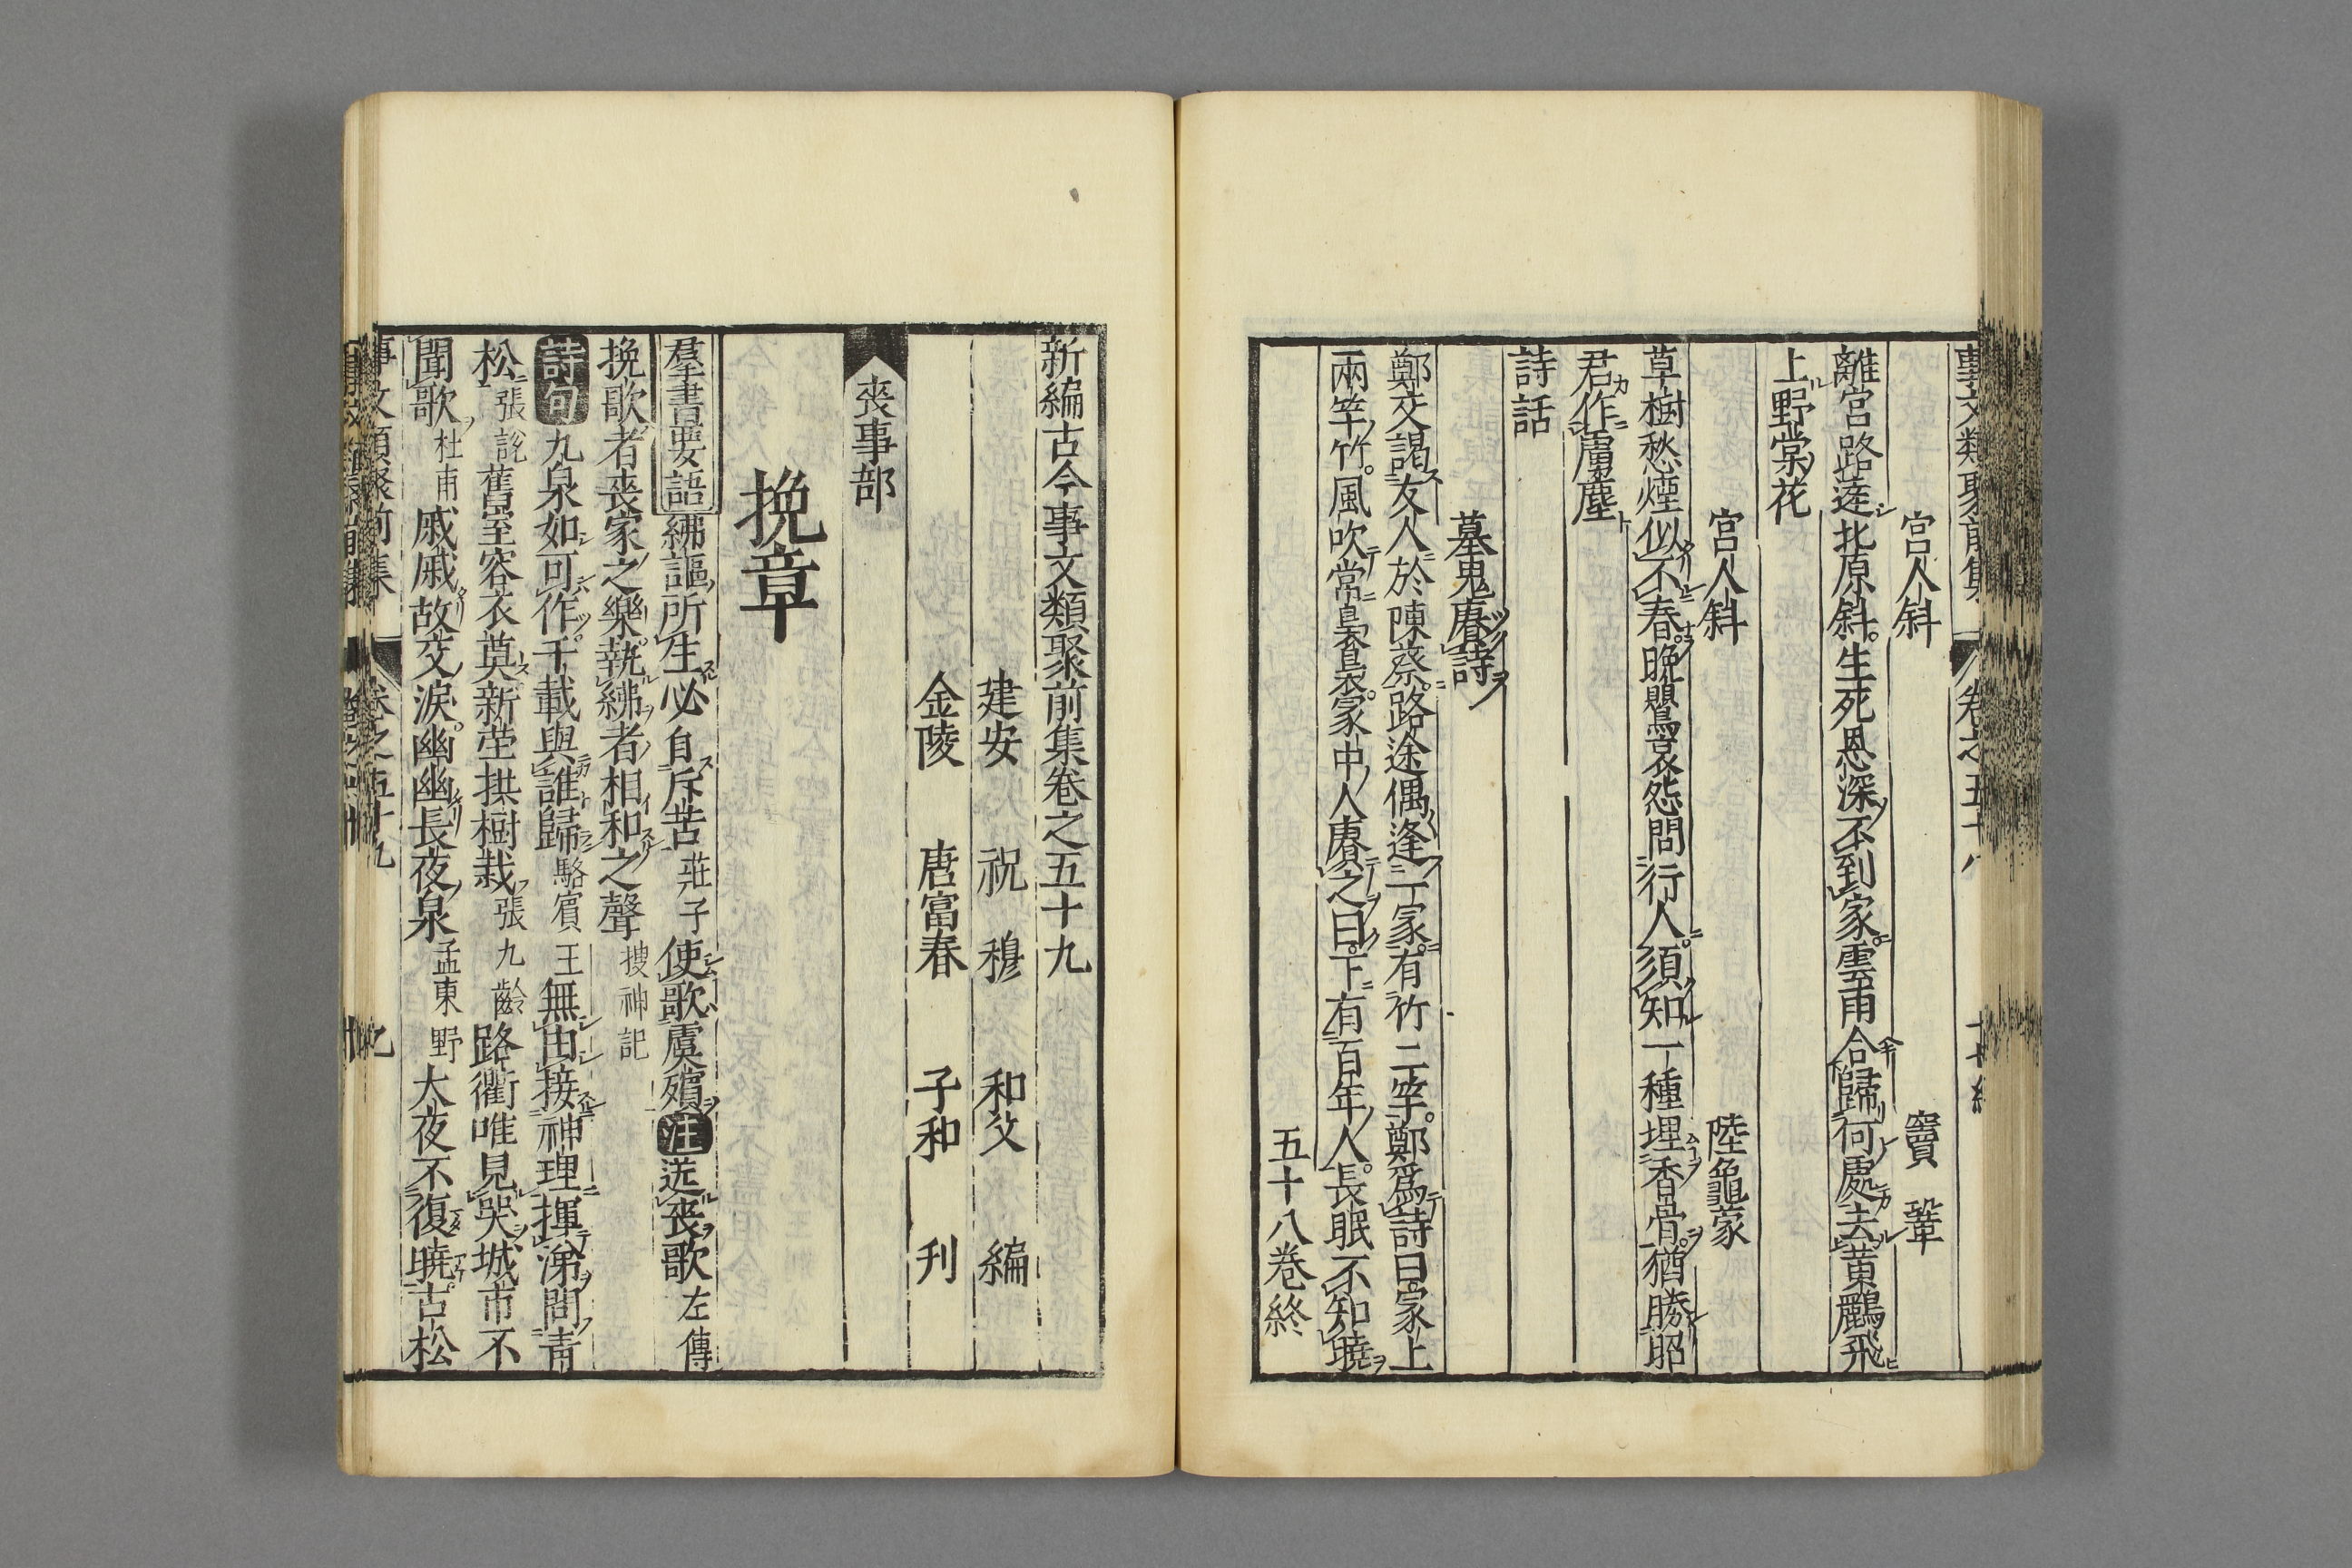 宮人斜 竇鞏
離宮路遶北原斜生死恩深不到家雲雨合歸何處去黄鸝飛
上野棠花
宮人斜 陸龜蒙
草樹愁煙似不春晚鶯哀怨問行人須知一種埋香骨猶勝昭
君作虜塵
詩話
墓鬼賡詩
鄭交謁友人於陳蔡路途偶逢一冢有竹二竿鄭爲詩曰冢上
兩竿竹風吹常裊裊冢中人賡之曰下有百年人長眠不知曉
五十八卷終
新編古今事文類聚前集卷之五十九
建安 祝 穆 和父 編
金陵 唐富春 子和 刋
喪事部
挽章
羣書要語紼謳所生必自斥苦莊子使歌虞殯注送喪歌左傳
挽歌者喪家之樂執紼者相和之聲搜神記
詩句九泉如可作千載與誰歸駱賓王無由接神理揮涕問青
松張說舊室容衣奠新塋拱樹栽張九齡路衢唯見哭城市不
聞歌杜甫戚戚故交淚幽幽長夜泉孟東野大夜不復曉古松
事文類聚前集 卷之五十九